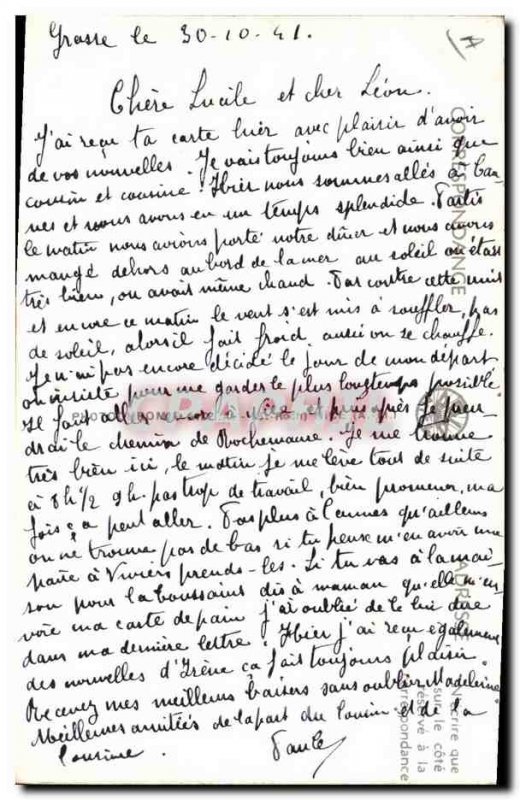 Grasse le 30-10-41.
A
Chère Lucile et cher Léon.
J'ai reçu ta carte hier avec plaisir d'avoir
de vos nouvelles. Je vais toujours bien ainsi que
cousin et cousine. Hier nous sommes allés à Can-
nes et nous avons eu un temps splendide. Partis
le matin nous avions porté notre dîner et nous avons
mangé dehors au bord de la mer au soleil on était
très bien, on avait même chaud. Par contre cette nuit
et encore ce matin le vent s'est mis à souffler, pas
de soleil, alors il fait froid, aussi on se chauffe.
Je n'ai pas encore décidé le jour de mon départ
on insiste pour me garder le plus longtemps possible
Il faut aller encore à et puis après je pren-
drai le chemin de Rochemaure. Je me trouve
très bien ici, le matin je me lève tout de suite
à 8h½ 9h. pas trop de travail, bien promeneur, ma
fois ça peut aller. Pas plus à Cannes qu'ailleurs
on ne trouve pas de bas si tu peux m'en avoir une
paire à Viviers prends-les. Si tu vas à la mai-
son pour la Toussaint dis à maman qu'elle m'en-
voie ma carte de pain j'ai oublié de le lui dire
dans ma dernière lettre. Hier j'ai reçu également
des nouvelles d'Irène ça fait toujours plaisir.
Recevez mes meilleurs baisers sans oublier Madeleine
Meilleures amitiés de la part du cousin et de la
cousine.
Paule
CORRESPONDANCE
ADRESSE
crire que
sur le côté
réservé à la
correspondance